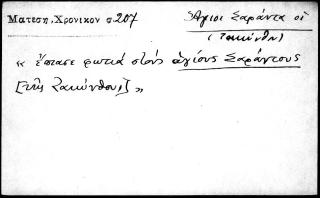 Ματεση, Χρονικον σ 207
Ἅγιοι Σαράντα οἱ
(Ζακύνθῳ)
« ἔπιασε φωτιὰ στοὺς ἁγίους Σαράντους
[τῆς Ζακύνθου] »